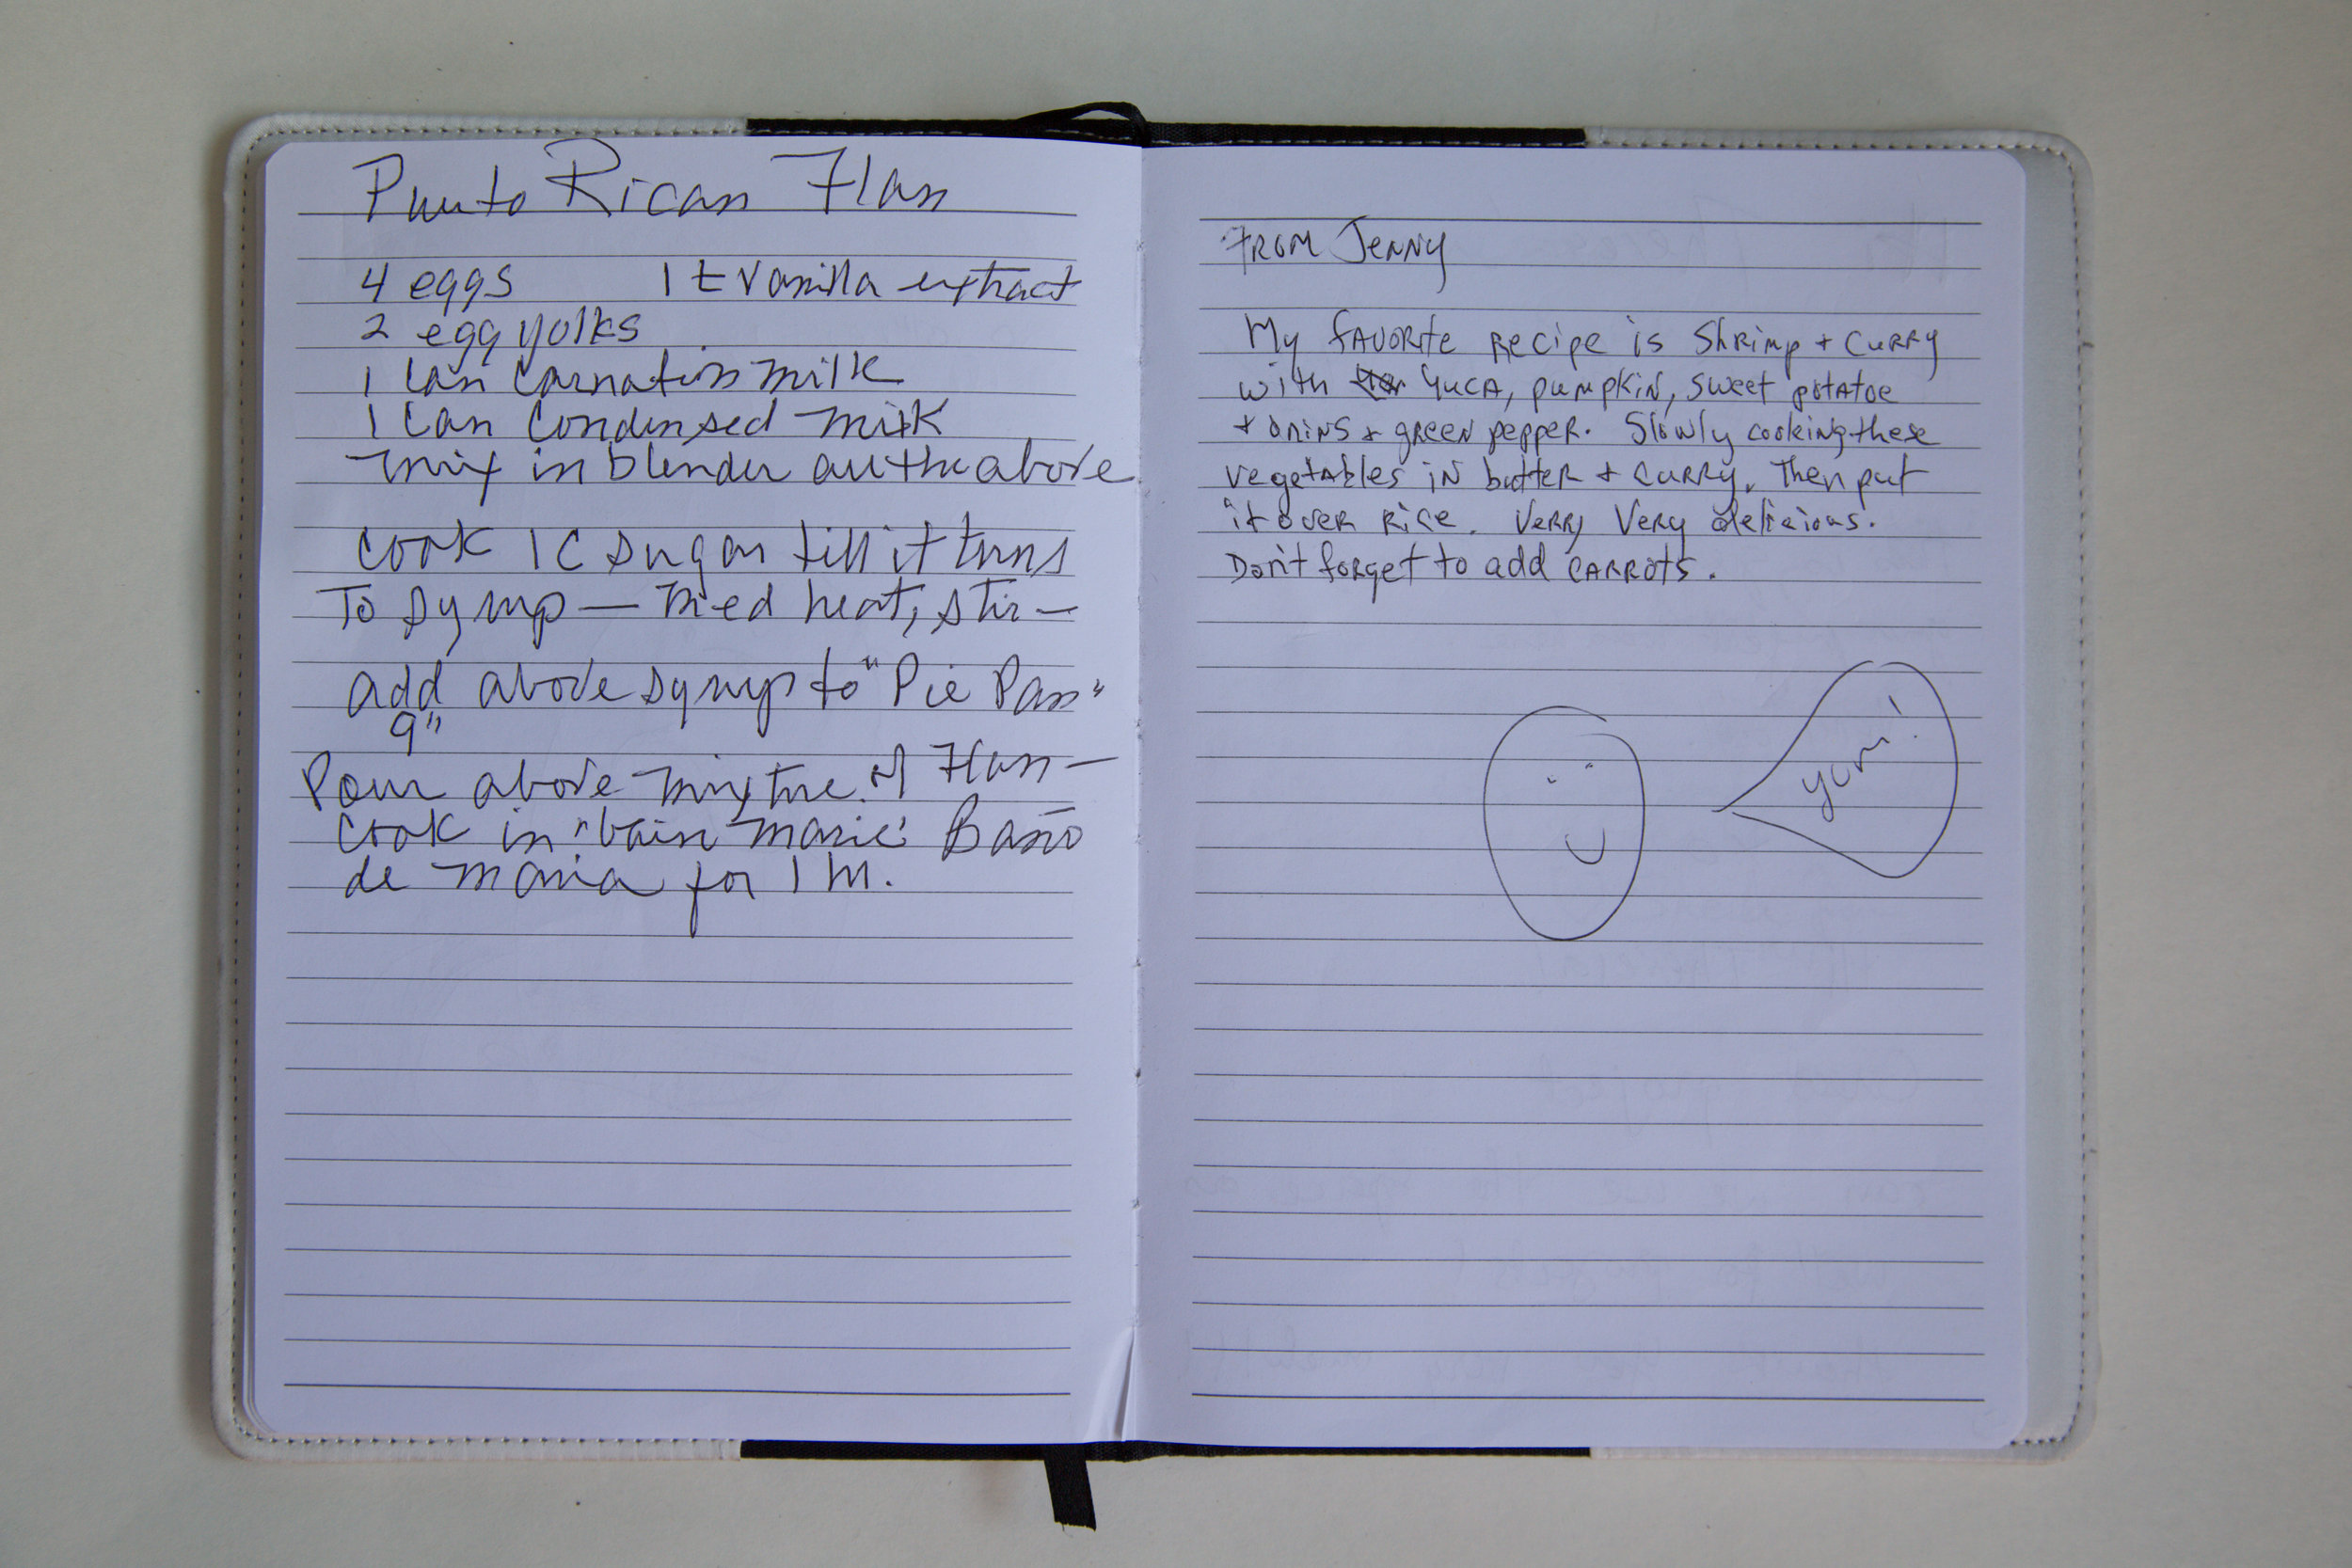 Puerto Rican Flan
4 eggs 1 t Vanilla extract
2 egg yolks
1 Can Carnation milk
1 Can Condensed milk
mix in blender all the above
Cook 1 C sugar till it turns
To syrup — Med heat, stir —
add above syrup to "Pie Pan"
9"
Pour above mixture of Flan —
Cook in "bain marie" Baño
de maria for 1 hr.
FROM JENNY
My FAVORite Recipe is Shrimp + CURRy
with YUCA, pumpkin, sweet potatoe
+ onins + green pepper. Slowly cooking these
vegetables in butter + curry. Then put
it over rice. Verry Very delicious.
Don't forget to add CARROTS.
yum!